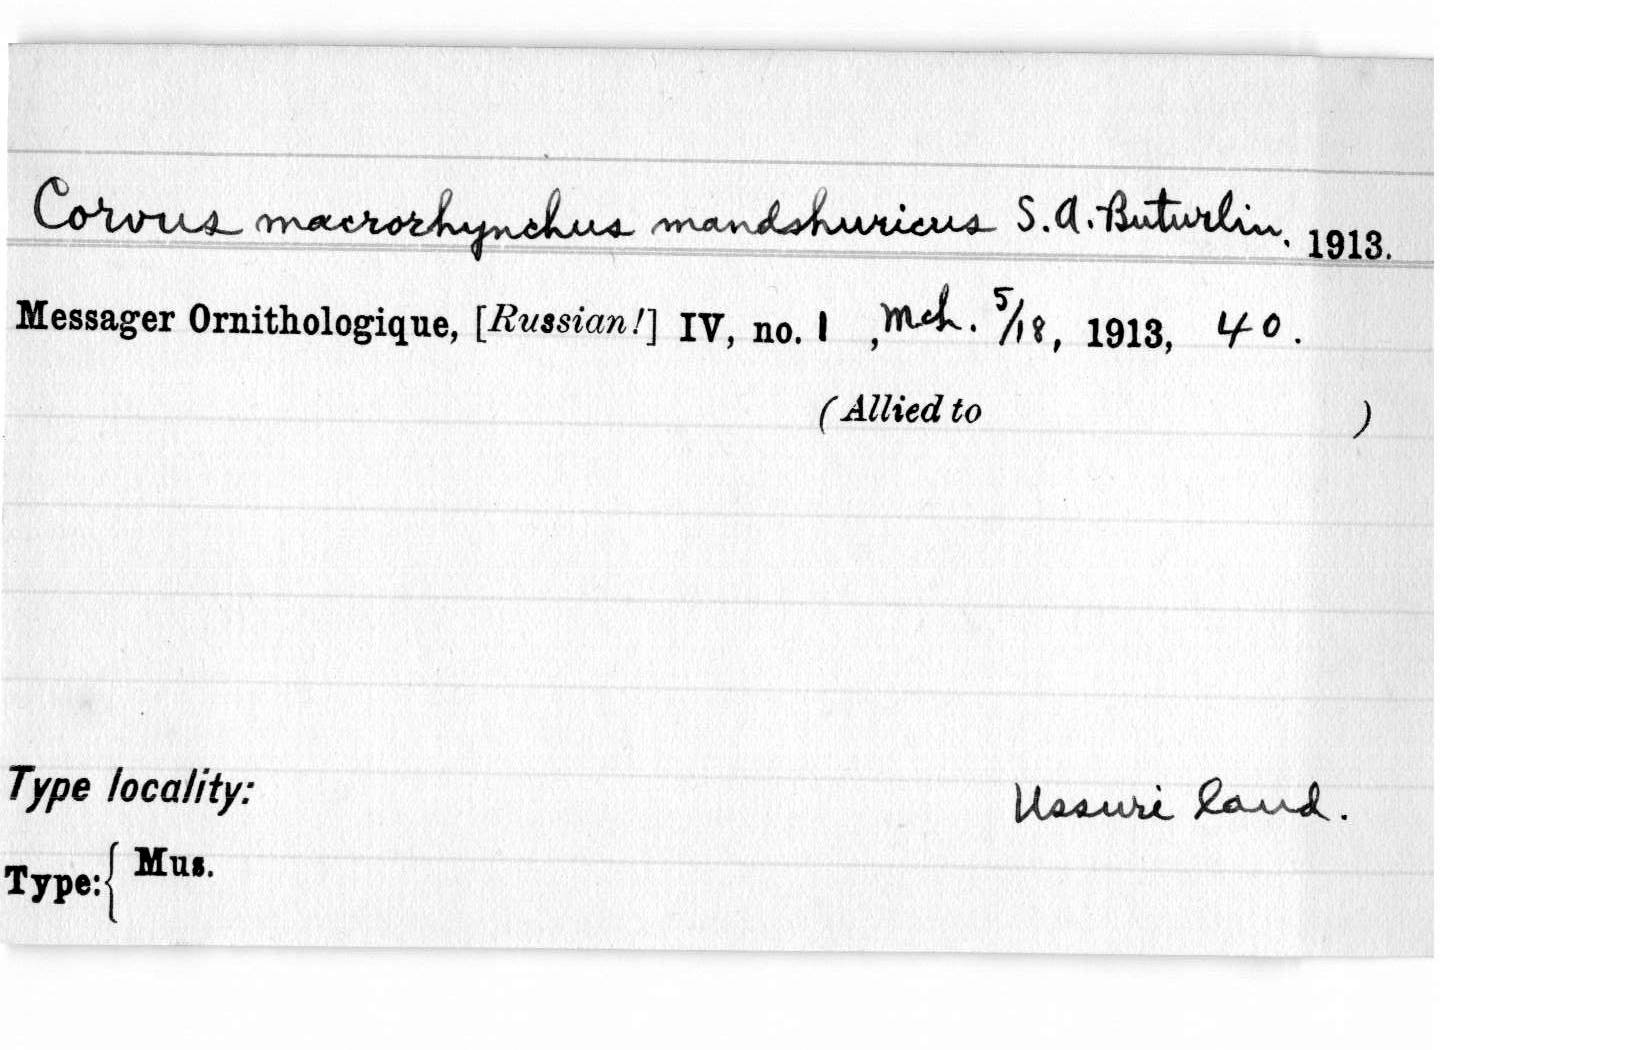 Corvus macrorhynchus mandshuricus S.A. Buturlin. 1913.
Messager Ornithologique, [Russian!] IV, no. 1 , Mch. 5/18, 1913, 40.
(Allied to )
Type locality: Ussuri land.
Type: { Mus.